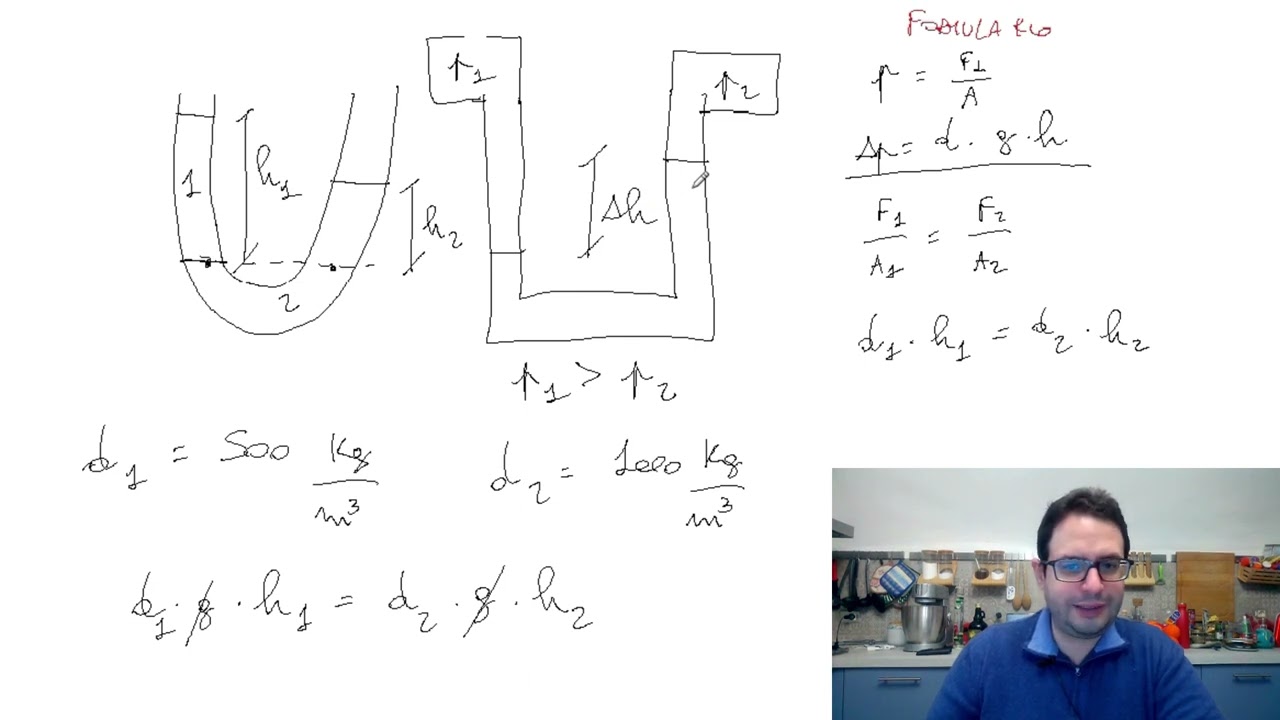 FORMULARIO
p = F⊥ / A
Δp = d · g · h.
F1 / A1 = F2 / A2
d1 · h1 = d2 · h2
p1
p2
1
h1
h2
2
Δh
p1 > p2
d1 = 500 kg / m³
d2 = 1000 kg / m³
d1 · g · h1 = d2 · g · h2